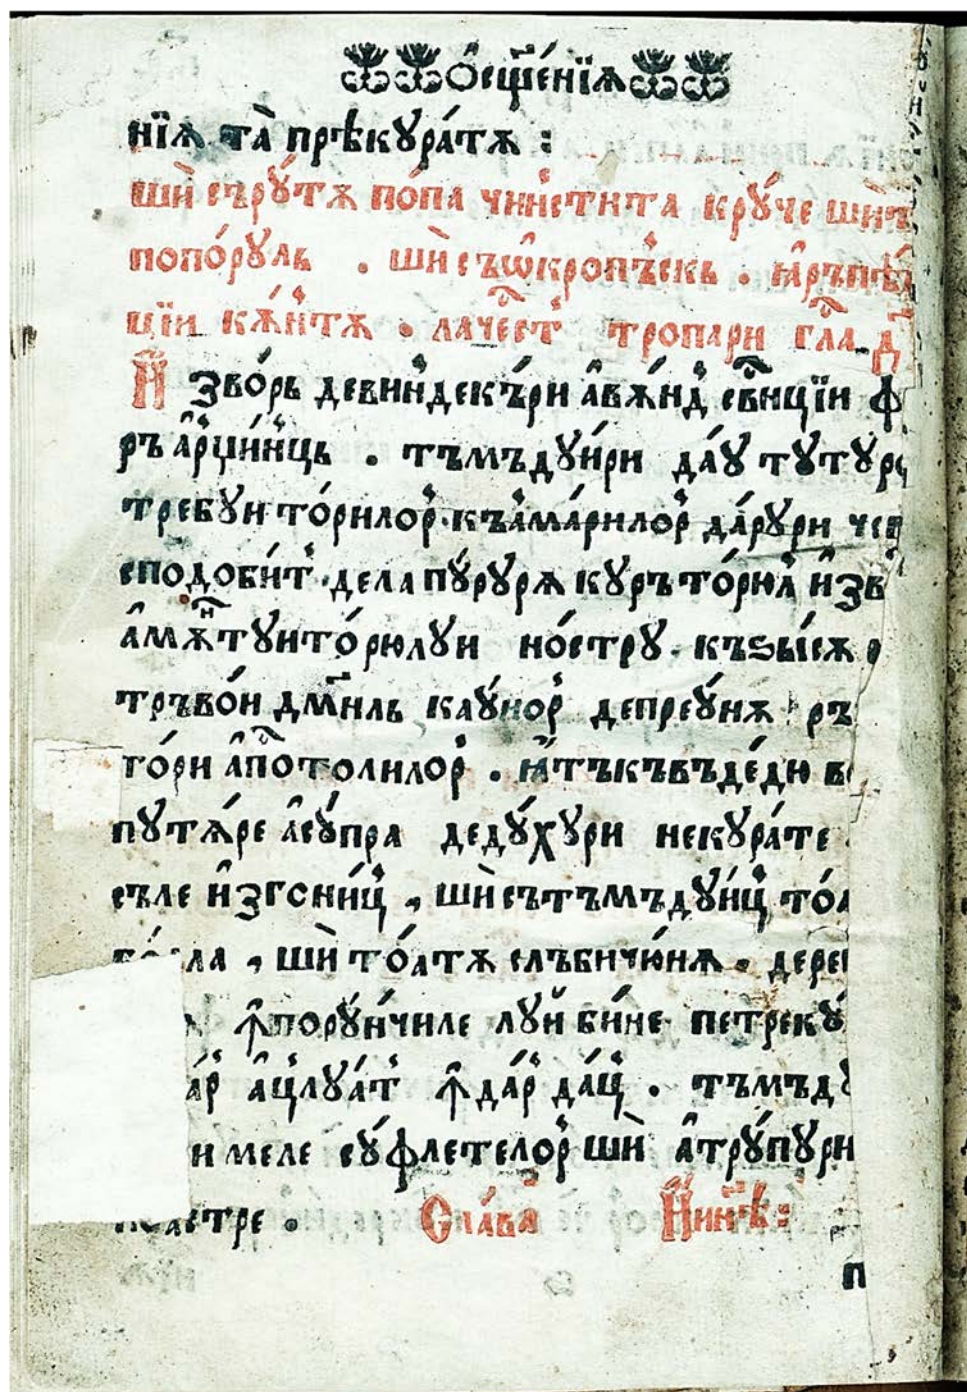 Ѻсщ҃е́нїѧ
нїѫ та̀ прѣкꙋра́тѫ :
шѝ сърꙋ́тѫ по́па чин́стита крꙋ́че шѝ
попо́рꙋль . шѝ съѡ҆кропъ́скь .
цїи кѫ́нтѫ . тропари гла д
И҆зво́рь девин́декъри а҆вѫ́нд сви҃нцїи
ръ а҆рџи́нць . тъмъдꙋи́ри да́ꙋ
требꙋито́рилор къа҆ма́рилор да́рꙋри
сподоби́т . дела пꙋ́рꙋрѫ кꙋръто́рюл и҆зв
а҆мѫнтꙋито́рюлꙋи но́стрꙋ . къѕы́сѫ
тръво́и дм҃ниль каꙋ́нор депреꙋ́нѫ
то́ри а҆по҃столилор . ꙟтъкъвъде́дю
пꙋтѫ́ре а҆сꙋ́пра дедꙋ́хꙋри некꙋра́те
съле и҆згони́ц , шѝ сътъмъдꙋи́ц
ла , шѝ то́атѫ слъбичю́нѫ .
ꙟпорꙋ́нчиле лꙋй би́не петрекꙋ́
а́р а҆цлꙋа́т ꙟда́р да́ц . тъмъдꙋ
и меле сꙋ́флетелор шѝ а҆трꙋ́пꙋри
ноастре . Сла́ва И҆нинѣ :
п